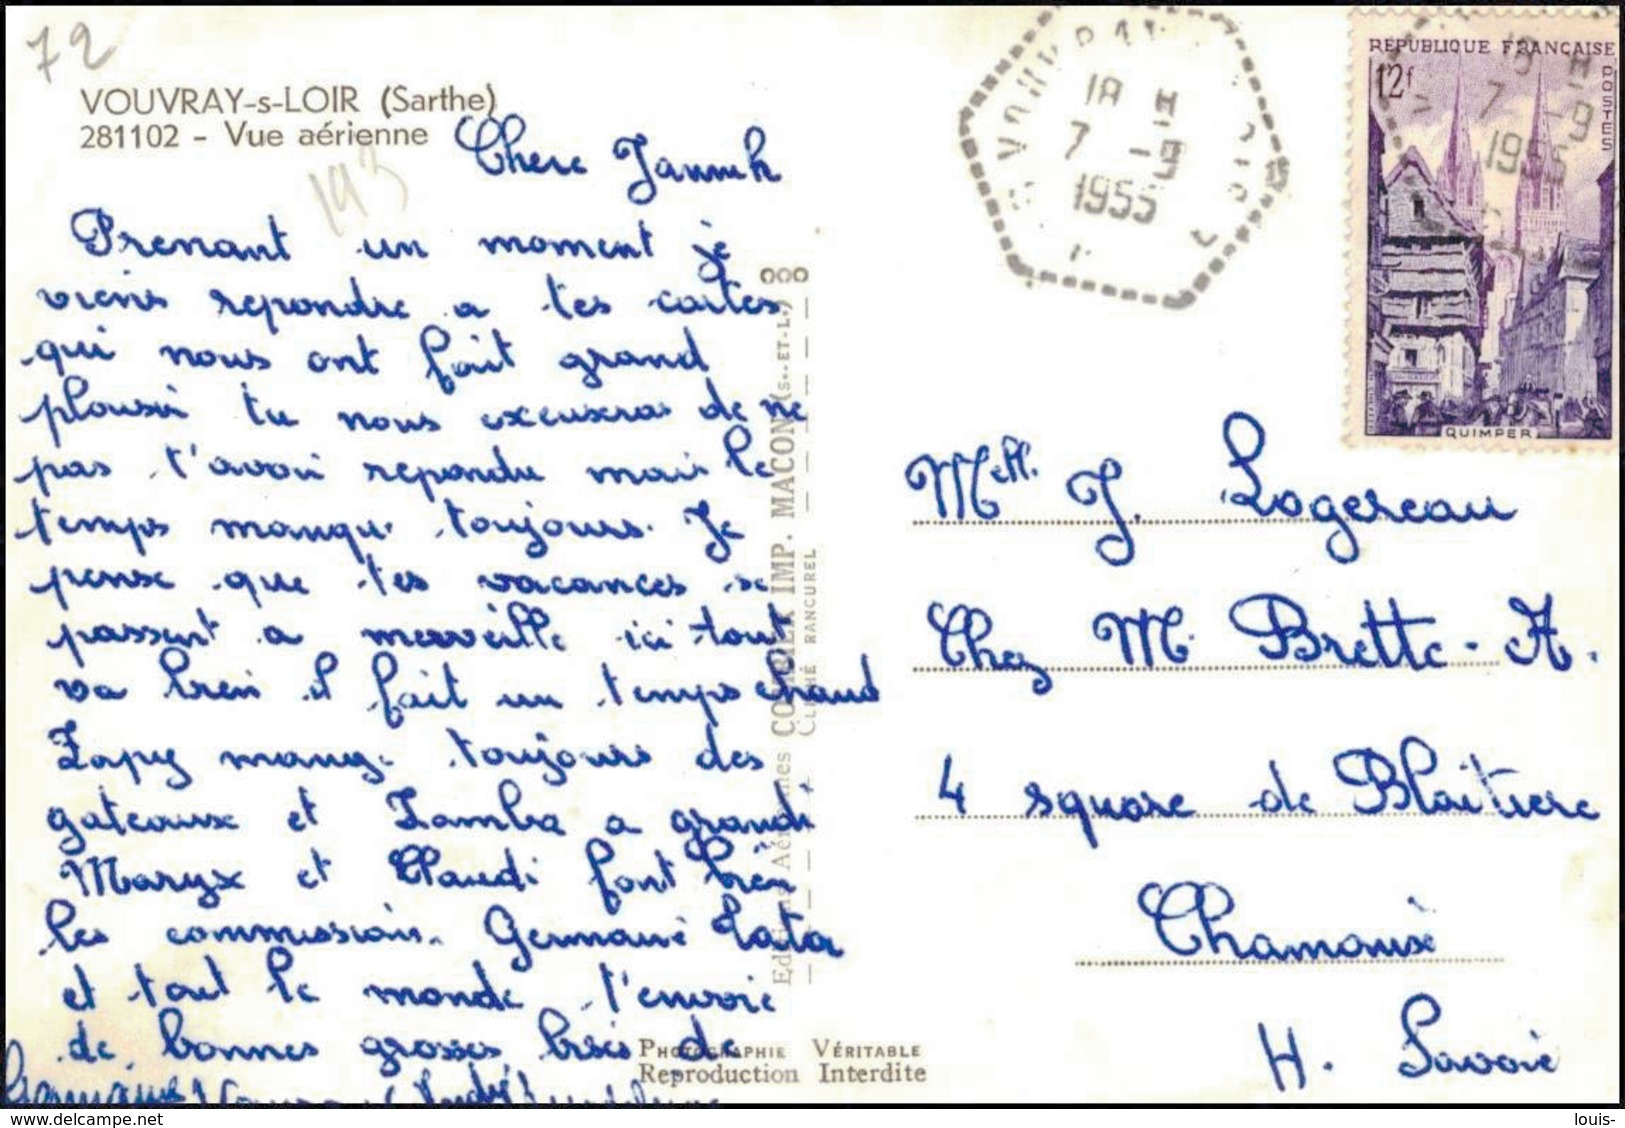 72
VOUVRAY-s-LOIR (Sarthe)
281102 - Vue aérienne
193
Chere
Prenant un moment je
viens repondre a tes cartes
qui nous ont fait grand
plaisir tu nous excuseras de ne
pas t'avoir repondu mais le
temps manque toujours. Je
pense que tes vacances se
passent a merveille ici tout
va bien il fait un temps chaud
Zapy mange toujours des
gateaux et Zamba a grandi
Maryx et Claudi font bien
les commissions. Germaine Tata
et tout le monde t'envoie
de bonnes grosses bises de
Germaine
Editions Aériennes COMBIER IMP. MACON (S.-ET-L.)
CLICHÉ RANCUREL
PHOTOGRAPHIE VÉRITABLE
Reproduction Interdite
VOUVRAY
18 H
7 -9
1955
RÉPUBLIQUE FRANÇAISE
12f
POSTES
QUIMPER
18 H
7 -9
1955
Melle. J. Logereau
Chez M. Brette-A.
4 square de Blaitiere
Chamonix
H. Savoie
louis-